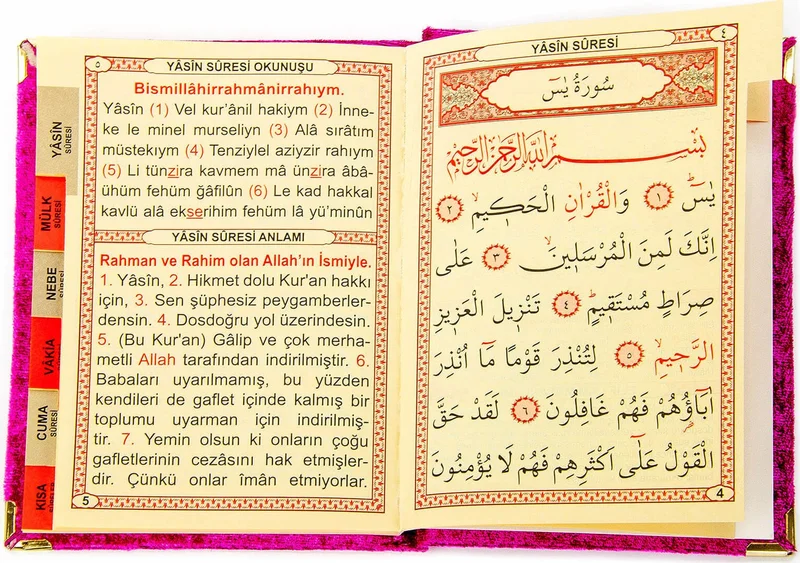 YÂSÎN SÛRESİ
٤
سُورَةُ يٰسٓ
بِسْمِ اللّٰهِ الرَّحْمٰنِ الرَّحٖيمِ
يٰسٓ ﴿١﴾ وَالْقُرْاٰنِ الْحَكٖيمِ ﴿٢﴾
اِنَّكَ لَمِنَ الْمُرْسَلٖينَ ﴿٣﴾ عَلٰى
صِرَاطٍ مُسْتَقٖيمٍ ﴿٤﴾ تَنْزٖيلَ الْعَزٖيزِ
الرَّحٖيمِ ﴿٥﴾ لِتُنْذِرَ قَوْمًا مَٓا اُنْذِرَ
اٰبَٓاؤُ۬هُمْ فَهُمْ غَافِلُونَ ﴿٦﴾ لَقَدْ حَقَّ
الْقَوْلُ عَلٰٓى اَكْثَرِهِمْ فَهُمْ لَا يُؤْمِنُونَ
4
٥
YÂSÎN SÛRESİ OKUNUŞU
Bismillâhirrahmânirrahıym.
Yâsîn (1) Vel kur'ânil hakiym (2) İnne-
ke le minel murseliyn (3) Alâ sırâtım
müstekıym (4) Tenziylel aziyzir rahıym
(5) Li tünzira kavmem mâ ünzira âbâ-
ühüm fehüm ğâfilûn (6) Le kad hakkal
kavlü alâ ekserihim fehüm lâ yü'minûn
YÂSÎN SÛRESİ ANLAMI
Rahman ve Rahim olan Allah'ın İsmiyle.
1. Yâsîn, 2. Hikmet dolu Kur'an hakkı
için, 3. Sen şüphesiz peygamberler-
densin. 4. Dosdoğru yol üzerindesin.
5. (Bu Kur'an) Gâlip ve çok merha-
metli Allah tarafından indirilmiştir. 6.
Babaları uyarılmamış, bu yüzden
kendileri de gaflet içinde kalmış bir
toplumu uyarman için indirilmiş-
tir. 7. Yemin olsun ki onların çoğu
gafletlerinin cezâsını hak etmişler-
dir. Çünkü onlar îmân etmiyorlar.
5
YÂSÎN
SÛRESİ
MÜLK
SÛRESİ
NEBE
SÛRESİ
VÂKIA
SÛRESİ
CUMA
SÛRESİ
KISA